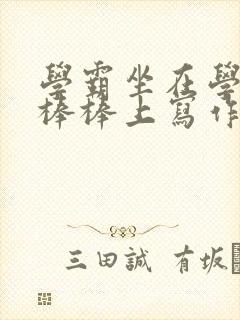 學霸坐在學
棒棒上寫作
三田誠 有坂